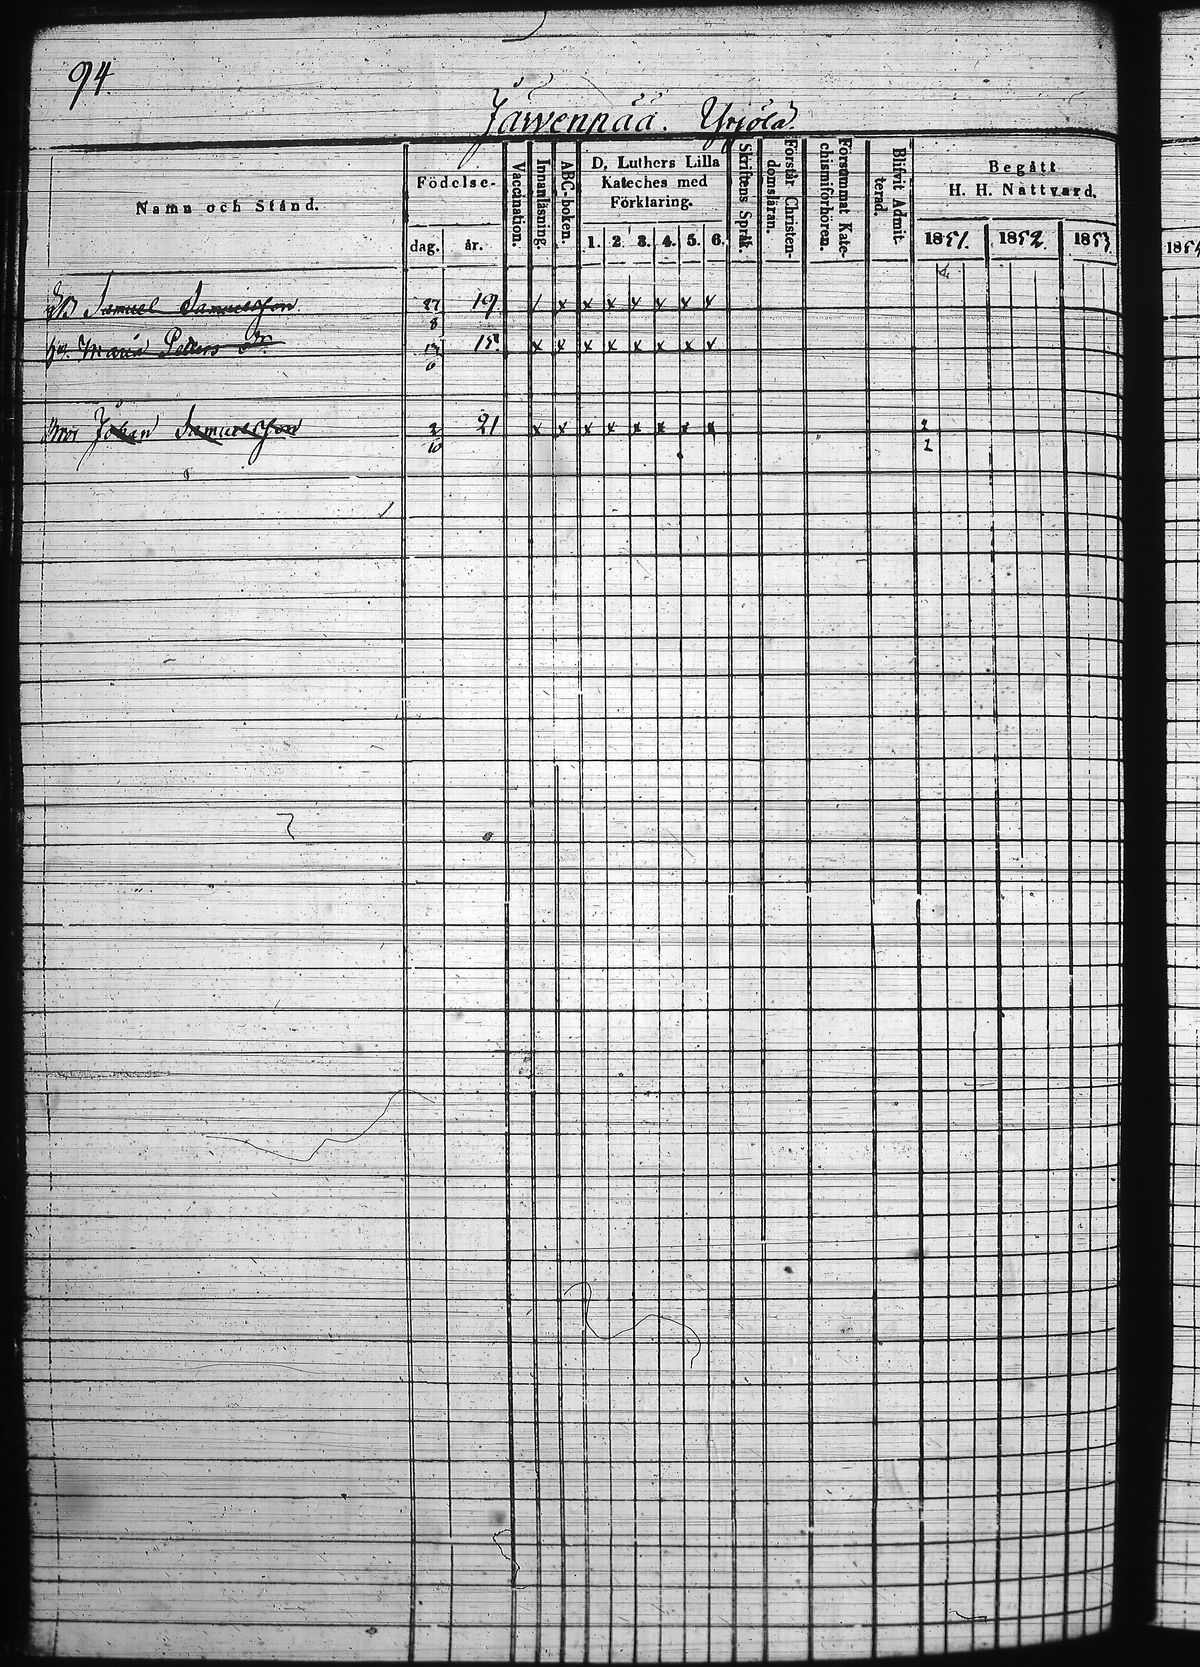 94.
Järvenpää. Yrjölä.
Namn och Stånd.
Födelse-
dag. år.
Vaccination.
Innanläsning.
ABC-boken.
D. Luthers Lilla
Kateches med
Förklaring.
1. 2. 3. 4. 5. 6.
Skriftens Språk.
Förstår Christen-
domsläran.
Försummat Kate-
chismiförhören.
Blifvit Admit-
terad.
Begått
H. H. Nattvard.
1851. 1852. 1853
1854
Samuel Samuelsson 27 19 / x x x x x x x
8
Maria Peders Dr. 15 x x x x x x x x
6
Johan Samuelsson 2 21 x x x x x x x x 2
10 2